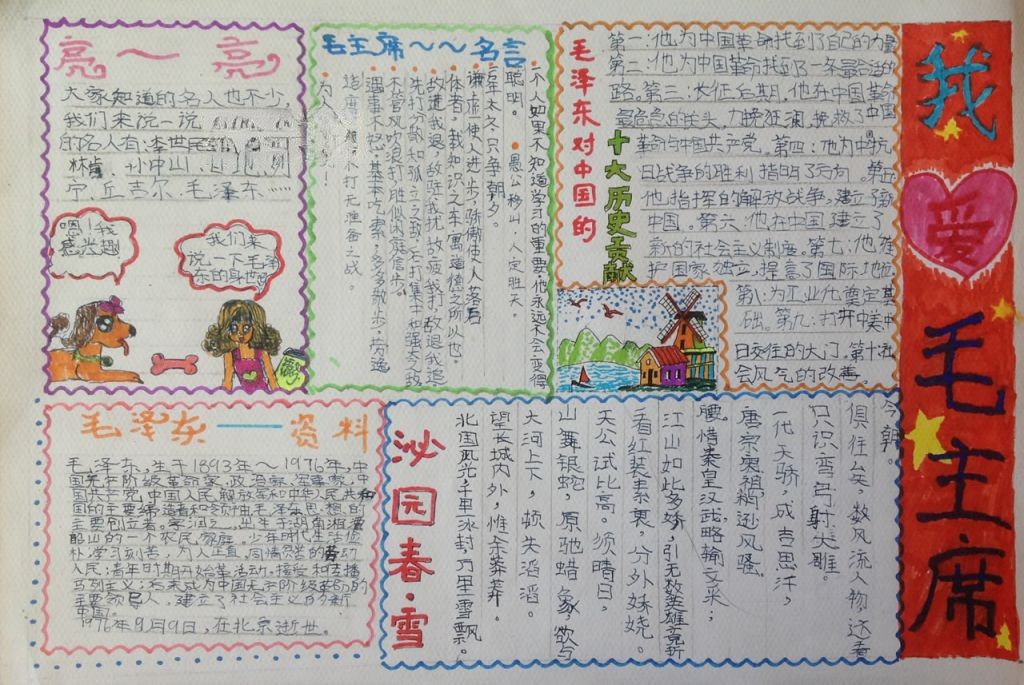 我爱毛主席
亮～亮
大家知道的名人也不少,
我们来说一说
的名人有:李世民
林肯、孙中山、
宁、丘吉尔、毛泽东……
嗯!我
感兴趣
我们来
说一下毛泽
东的身世
毛主席～～名言
一个人如果不知道学习的重要,他永远不会变得
聪明。
愚公移山,人定胜天。
谦虚使人进步,骄傲使人落后
体者,我知识之车而寓道德之所以也。
敌进我退,敌驻我扰,敌疲我打,敌退我追
不管风吹浪打,胜似闲庭信步。
不打无准备之战。
毛泽东对中国的
十大历史贡献
第一:他为中国革命找到了自己的力量
第二:他为中国革命找到了一条最合适的
路。第三:长征后期,他在中国革命
最危急的关头,力挽狂澜,挽救了中国
革命和中国共产党。第四:他为中抗
日战争的胜利指明了方向。第五
他指挥的解放战争,建立了新
中国。第六:他在中国建立了
新的社会主义制度。第七:他维
护国家独立,提高了国际地位
第八:为工业化奠定基
础。第九:打开中美中
日交往的大门。第十社
会风气的改善。
毛泽东——资料
毛泽东,生于1893年～1976年,中
国无产阶级革命家,政治家,军事家,中
国共产党,中国人民解放军和中华人民共和
国的主要缔造者和领袖毛泽东思想的
主要创立者。字润之,出生于湖南湘潭
韶山的一个农民家庭。少年时代生活俭
朴学习刻苦,为人正直,同情劳苦的劳动
人民;青年时期开始革活动。接受和传播
马列主义;后来成为中国无产阶级革命的
主要领导人,建立了社会主义的新
中国。
1976年9月9日,在北京逝世。
沁园春·雪
北国风光,千里冰封,万里雪飘。
望长城内外,惟余莽莽。
大河上下,顿失滔滔。
山舞银蛇,原驰蜡象,欲与
天公试比高。须晴日,
看红装素裹,分外妖娆。
江山如此多娇,引无数英雄竞折
腰,惜秦皇汉武略输文采;
唐宗宋祖,稍逊风骚。
一代天骄,成吉思汗,
只识弯弓射大雕。
俱往矣,数风流人物,还看
今朝。